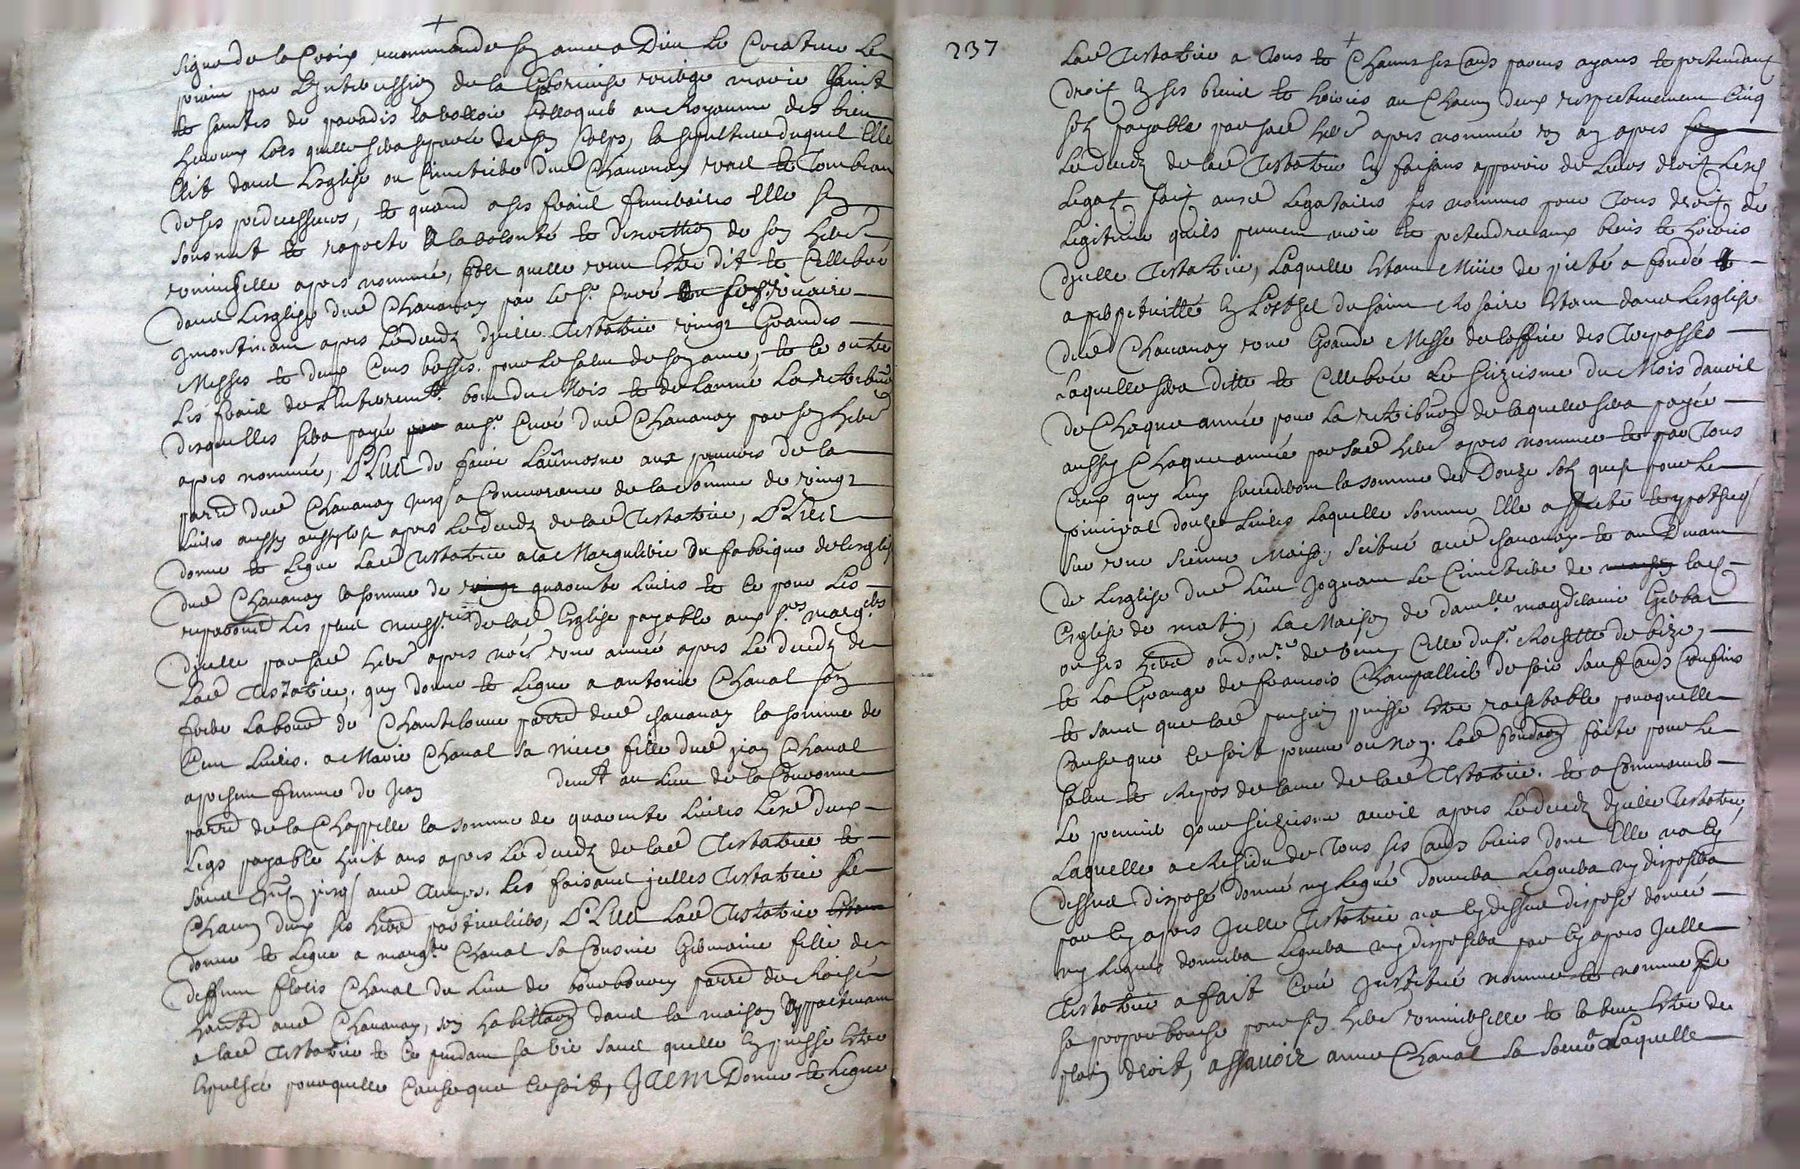 signe de la Croix recommandé son ame a Dieu le Createur le
priant par L'Intercession de la Glorieuse vierge marie saints
et saintes de paradis la volloir Colloquer au Royaume des bien
heureux Lors quelle sera separée de son Corps, la sepulture duquel Elle
Elit dans Leglise ou Cimetiere dud Chavanay vers le Tombeau
de ses predecesseurs, et quand a ses fraicts funeraires Elle sen
soumet et raporte a la volonté et discretion de son here
universelle apres nommée, sera quelle veut estre dit et Cellebré
dans Leglise dud Chavanay par le sr Curé ou son vicaire
Incontinant apres le decedz dicelle Testatrice vingt Grandes
Messes et deux Cens basses pour le salut de son ame, et ce outre
les frais de L'Enterremt bout du Mois et de Lannée la retribuon
desquelles sera payée au sr Curé dud Chavanay par son here
apres nommée, Plus de faire Laumosne aux pauvres de la
parre dud Chavanay jusqs a Concurrance de la somme de vingt
Livres aussy apres le decedz de lad Testatrice, Plus
donne et Legue lad Testatrice a la Marguilerie du fabrique de Leglise
dud Chavanay la somme de quarente Livres et ce pour les
de lad Eglise payable aux srs marguers
dicelle par sad here apres noée une année apres le decedz de
lad Testatrice, quy donne et Legue a antoine Chaval son
frere laboure de Chantelonne parre dud chavanay la somme de
Cent Livres. a Marie Chaval sa niece fille dud jean Chaval
a present femme de Jean demt au lieu de la Couronne
parre de la Chappelle la somme de quarente Livres Lesd deux
Legs payable huit ans apres le decedz de lad Testatrice et
sans Intr jusqs aud Temps. Les faisant jcelles Testatrice
Chacun deux ses here particuliers, Plus lad Testatrice
donne et Legue a margte Chaval sa Cousine Germaine fille de
deffunt floris Chaval du lieu de parre de
aud Chavanay, son habittaon dans la maison appartenant
a lad Testatrice et ce pendant sa vie sans quelle en puisse estre
Expulsée pour quelle Cause que ce soit, Item Donne et Legue
237
Lad Testatrice a Tous et Chacuns ses aus parens ayans et pretendans
droit en ses biens et hoiries au Chacun deux respectivement Cinq
solz payable par sad here apres nommée un an apres
Le decedz de lad Testatrice en faisans apparoir de leurs droit Lesd
Legatz fait ausd Legataires sus nommés pour Tous droitz de
Legitime quils peuvent avoir et pretendre aux biens et hoiries
dicelle Testatrice, Laquelle Estant Müe de pieté a fondé
a perpetuitté en Lostel du saint Rosaire Estant dans Leglise
dud Chavanay une Grande Messe de Loffice des Trepassés
Laquelle sera ditte et Cellebrée le seiziesme du Mois davril
de Chaque année pour la retribuon de laquelle sera payée
aussy Chaque année par sad here apres nommée et par Tous
Ceux quy luy succedront la somme de Douze solz quest pour le
principal douze Livres laquelle somme Elle a et ypothequé
sur une sienne Maison, scittué aud chavanay et au Devant
de Leglise dud lieu Joignant le Cimetiere de lad
Eglise de matin, la Maison de damlle magdelaine Gerbar
ou ses here ou donre de vent, Celle du sr Rochette de bize,
et la Grange de francois Champallier de soir sauf aus Confins
et sans que lad pension puisse estre rachetable pour quelle
Cause que ce soit preveue ou Non. Lad fondaon faite pour le
salut et Repos de lame de lad Testatrice. et a Commencer
le premier jour seiziesme avril apres le decedz dicelle Testatrice,
Laquelle a Residu de Tous ses aus biens dont Elle na Cy
dessus disposé donné ny legué donnera leguera ny disposera
par Cy apres Jcelle Testatrice na Cy dessus disposé donné
ny legués donnera leguera ny disposera par Cy apres Jcelle
Testatrice a fait Creé Institué nommé et nomme de
sa propre bouche pour son here universelle et la veut estre de
plein droit, assavoir anne Chaval sa soeur Laquelle